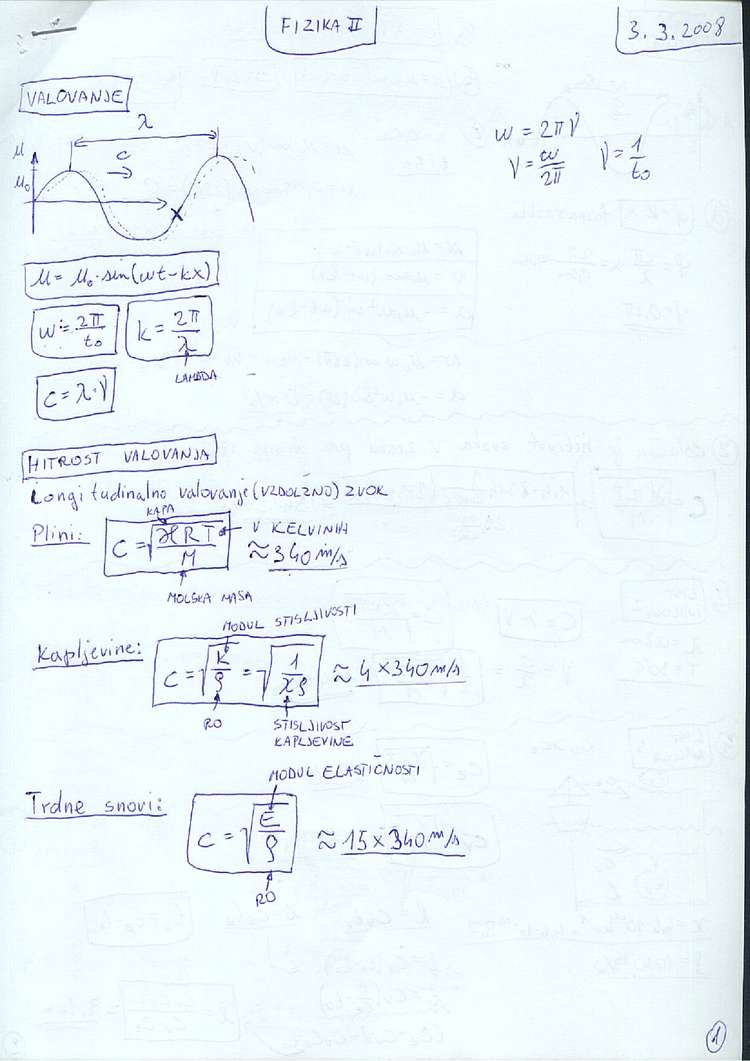 FIZIKA II
3. 3. 2008
VALOVANJE
λ
c
u
u₀
x
ω = 2πν
ν = ω/2π ν = 1/t₀
u = u₀·sin(ωt-kx)
ω = 2π/t₀ k = 2π/λ
LAMBDA
c = λ·ν
HITROST VALOVANJA
Longitudinalno valovanje (VZDOLŽNO) ZVOK
KAPA
Plini: c = √(ϰRT/M) V KELVINIH ≈ 340 m/s
MOLSKA MASA
MODUL STISLJIVOSTI
Kapljevine: c = √(K/ρ) = √(1/χρ) ≈ 4×340 m/s
RO STISLJIVOST
KAPLJEVINE
MODUL ELASTIČNOSTI
Trdne snovi: c = √(E/ρ) ≈ 15×340 m/s
RO
1